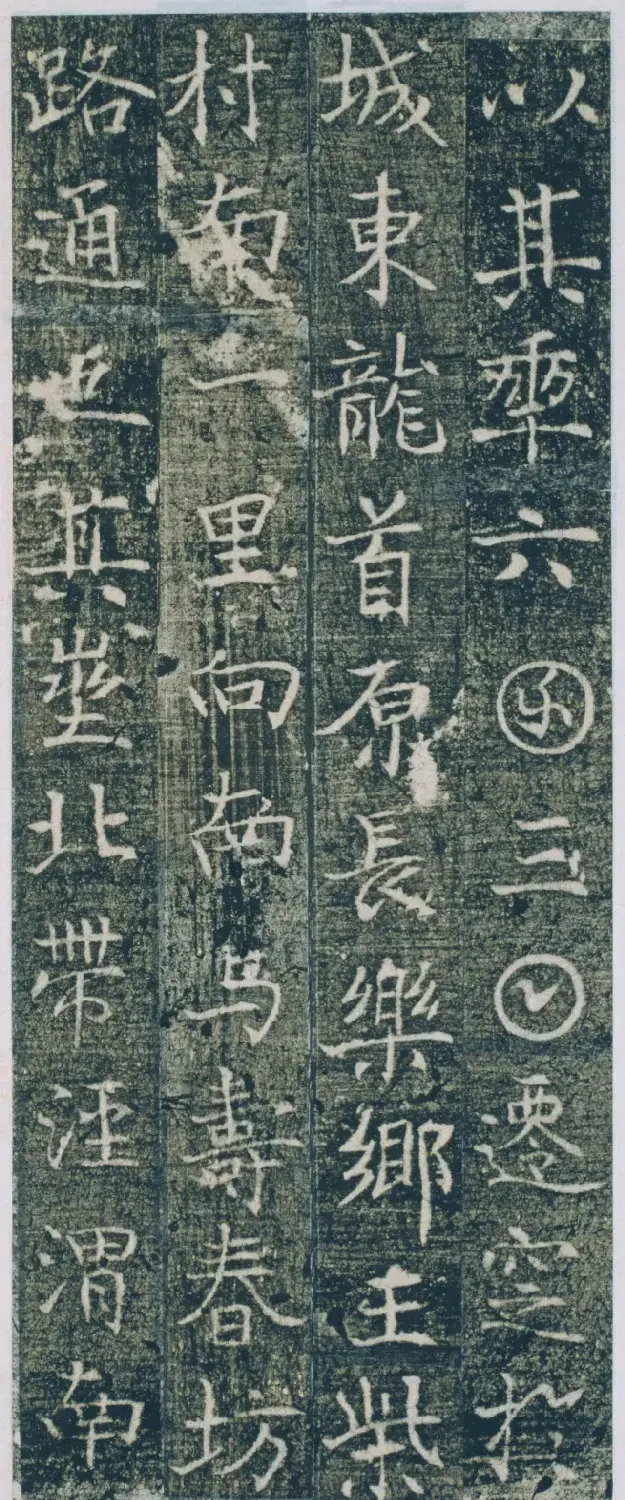 以其𠡦六囝三𡆠遷窆於
城東龍首原長樂鄉王柴
村南一里向南与壽春坊
路通也其塋北帶涇渭南